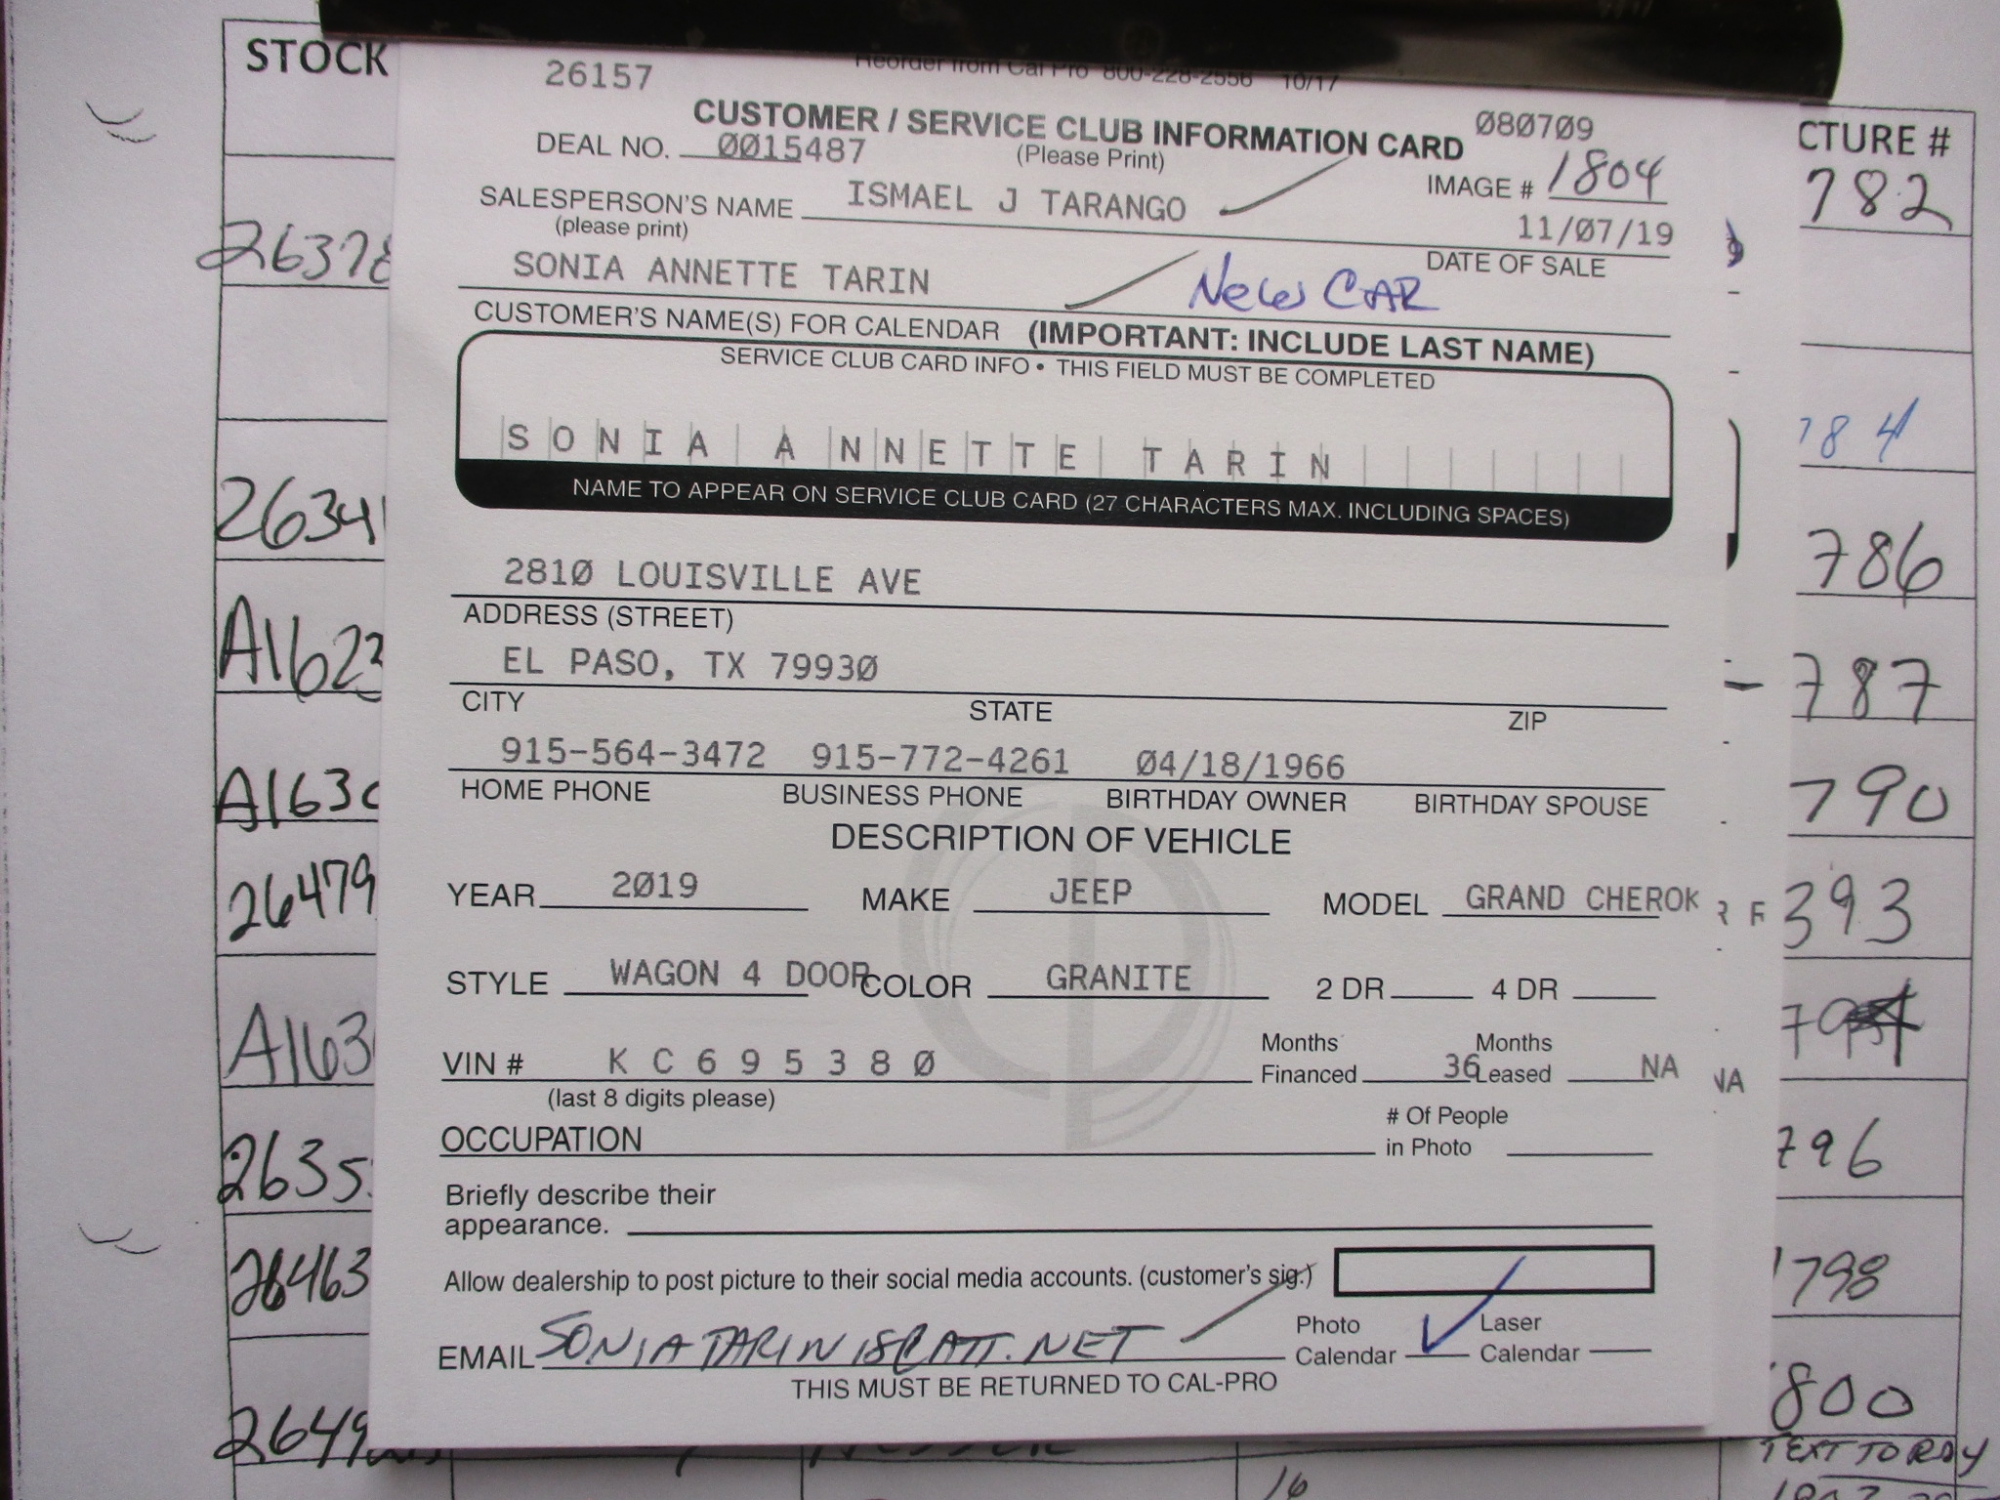 STOCK
26157
Reorder from Cal Pro 800-228-2556 10/17
CUSTOMER / SERVICE CLUB INFORMATION CARD
080709
DEAL NO. 0015487
(Please Print)
IMAGE # 1804
SALESPERSON'S NAME ISMAEL J TARANGO
(please print)
11/07/19
DATE OF SALE
SONIA ANNETTE TARIN
New CAR
CUSTOMER'S NAME(S) FOR CALENDAR (IMPORTANT: INCLUDE LAST NAME)
SERVICE CLUB CARD INFO • THIS FIELD MUST BE COMPLETED
SONIA ANNETTE TARIN
NAME TO APPEAR ON SERVICE CLUB CARD (27 CHARACTERS MAX. INCLUDING SPACES)
2810 LOUISVILLE AVE
ADDRESS (STREET)
EL PASO, TX 79930
CITY STATE ZIP
915-564-3472 915-772-4261 04/18/1966
HOME PHONE BUSINESS PHONE BIRTHDAY OWNER BIRTHDAY SPOUSE
DESCRIPTION OF VEHICLE
YEAR 2019 MAKE JEEP MODEL GRAND CHEROK
STYLE WAGON 4 DOOR COLOR GRANITE 2 DR 4 DR
VIN # K C 6 9 5 3 8 0
(last 8 digits please)
Months Financed 36 Months Leased NA
OCCUPATION
# Of People in Photo
Briefly describe their
appearance.
Allow dealership to post picture to their social media accounts. (customer's sig.)
EMAIL SONIATARIN18@ATT.NET
Photo Calendar
Laser Calendar
THIS MUST BE RETURNED TO CAL-PRO
CTURE #
782
784
786
787
790
R F 393
NA
796
1798
800
TEXT TO RDY
26378
26341
A1622
A1630
26479
A163
2635
26463
2649
16